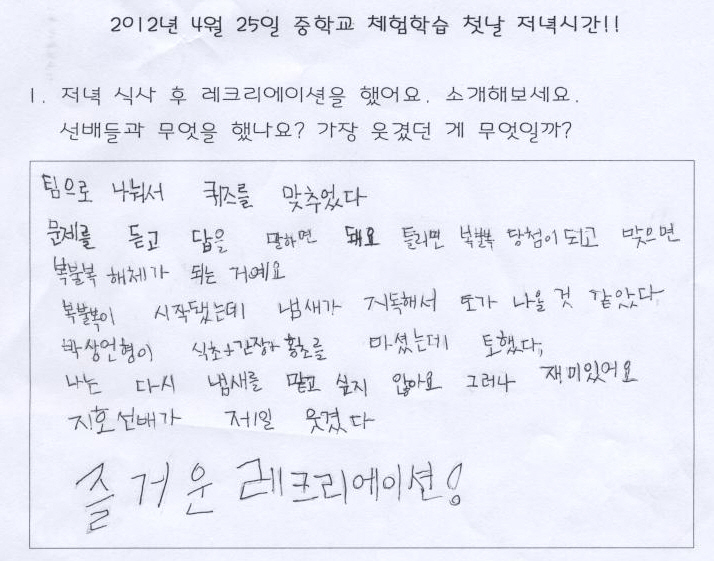 2012년 4월 25일 중학교 체험학습 첫날 저녁시간!!
1. 저녁 식사 후 레크리에이션을 했어요. 소개해보세요.
선배들과 무엇을 했나요? 가장 웃겼던 게 무엇일까?
팀으로 나눠서 퀴즈를 맞추었다
문제를 듣고 답을 말하면 돼요 틀리면 복불복 당첨이 되고 맞으면
복불복 해체가 되는 거예요
복불복이 시작됐는데 냄새가 지독해서 토가 나올 것 같았다
박상언형이 식초+간장+황초를 마셨는데 토했다,
나는 다시 냄새를 맡고 싶지 않아요 그러나 재미있어요
지호선배가 제일 웃겼다
즐거운 레크리에이션!